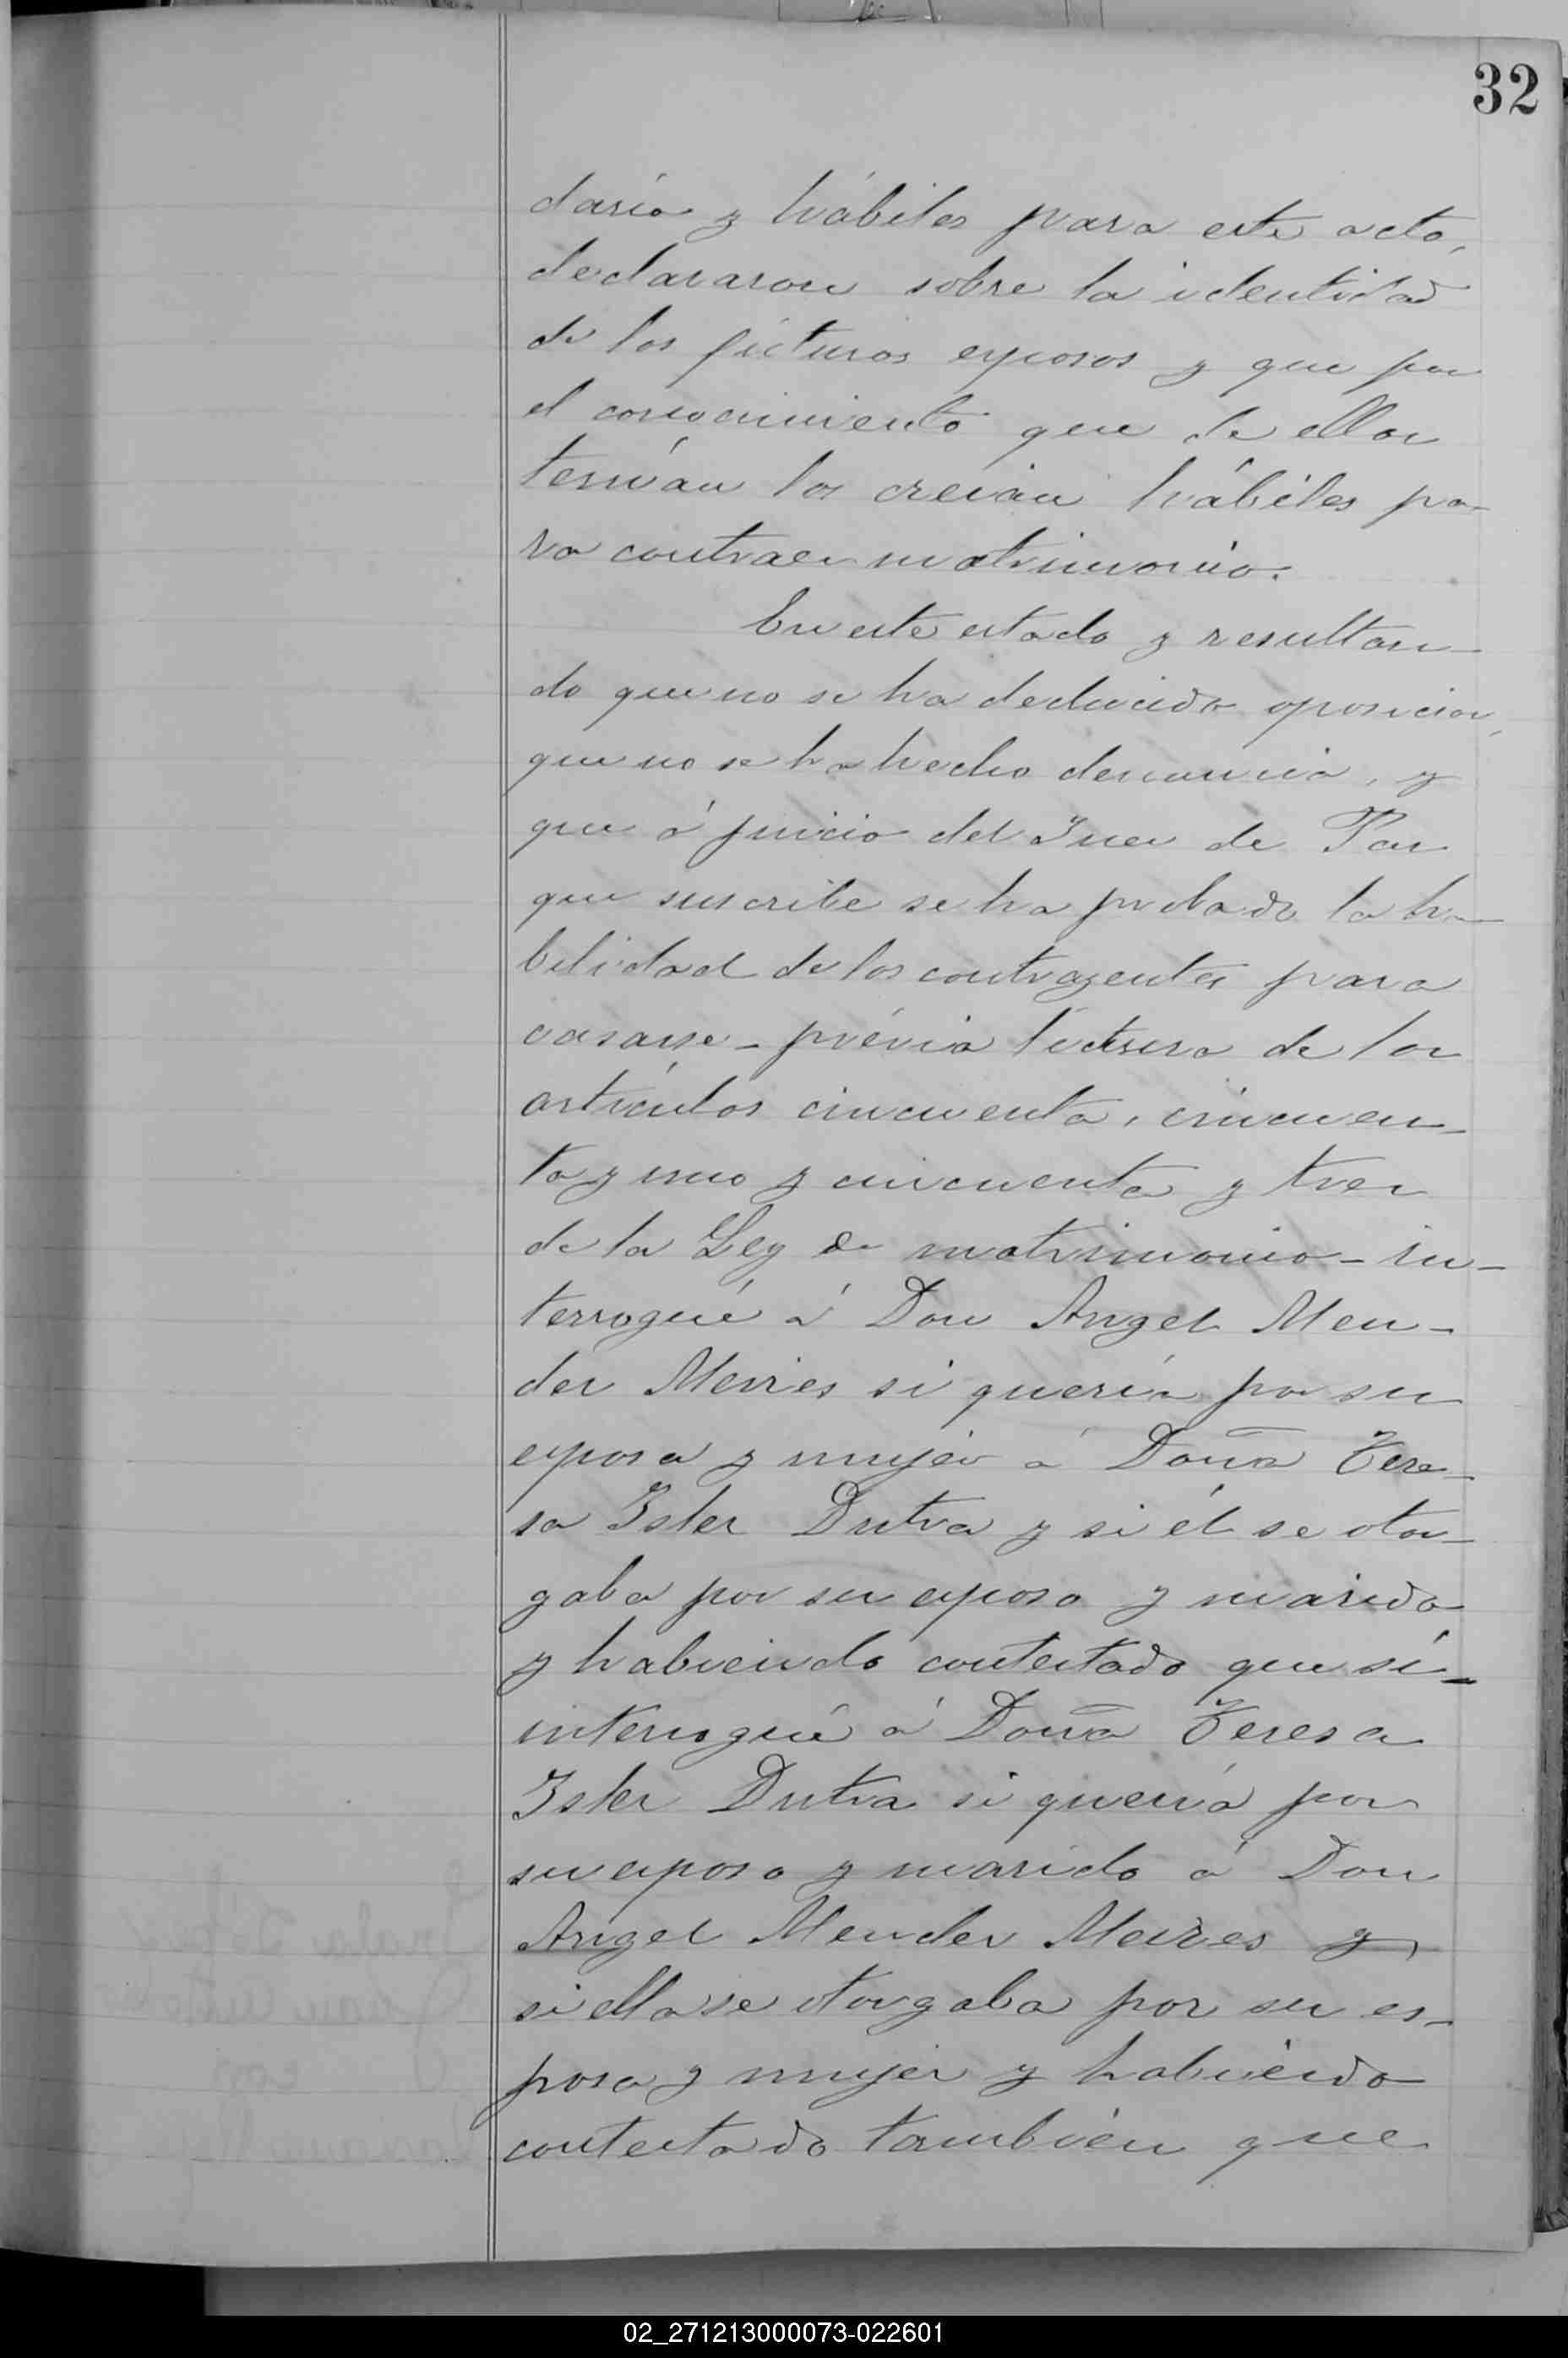 32
daria y hábiles para este acto,
declararon sobre la identidad
de los futuros esposos y que por
el conocimiento que de ellos
tenían los creian hábiles pa-
ra contraer matrimonio.
En este estado y resultan-
do que no se ha deducido oposicion,
que no se ha hecho denuncia, y
que á juicio del Juez de Paz
que suscribe se ha probado la ha-
bilidad de los contrayentes para
casarse - prévia lectura de los
artículos cincuenta, cincuen-
ta y uno y cincuenta y tres
de la Ley de matrimonio - in-
terrogué á Don Angel Men-
dez Meires si quería por su
esposa y mujer á Doña Tere-
sa Isler Dutra y si él se otor-
gaba por su esposo y marido
y habiendo contestado que sí -
interrogué á Doña Teresa
Isler Dutra si quería por
su esposo y marido á Don
Angel Mendez Meires y
si ella se otorgaba por su es-
posa y mujer y habiendo
contestado también que
02_271213000073-022601